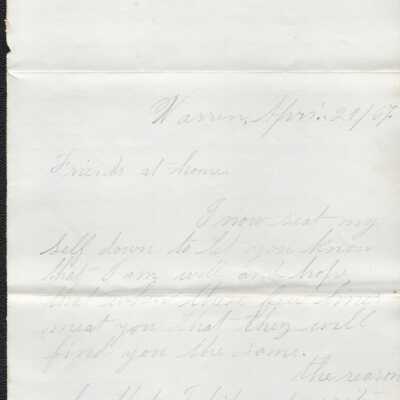 Warren, Apri. 21/67
Friends at home
I now seat my
self down to let you know
that I am well and hope
that when these few lines
meat you that they will
find you the same.
the reason